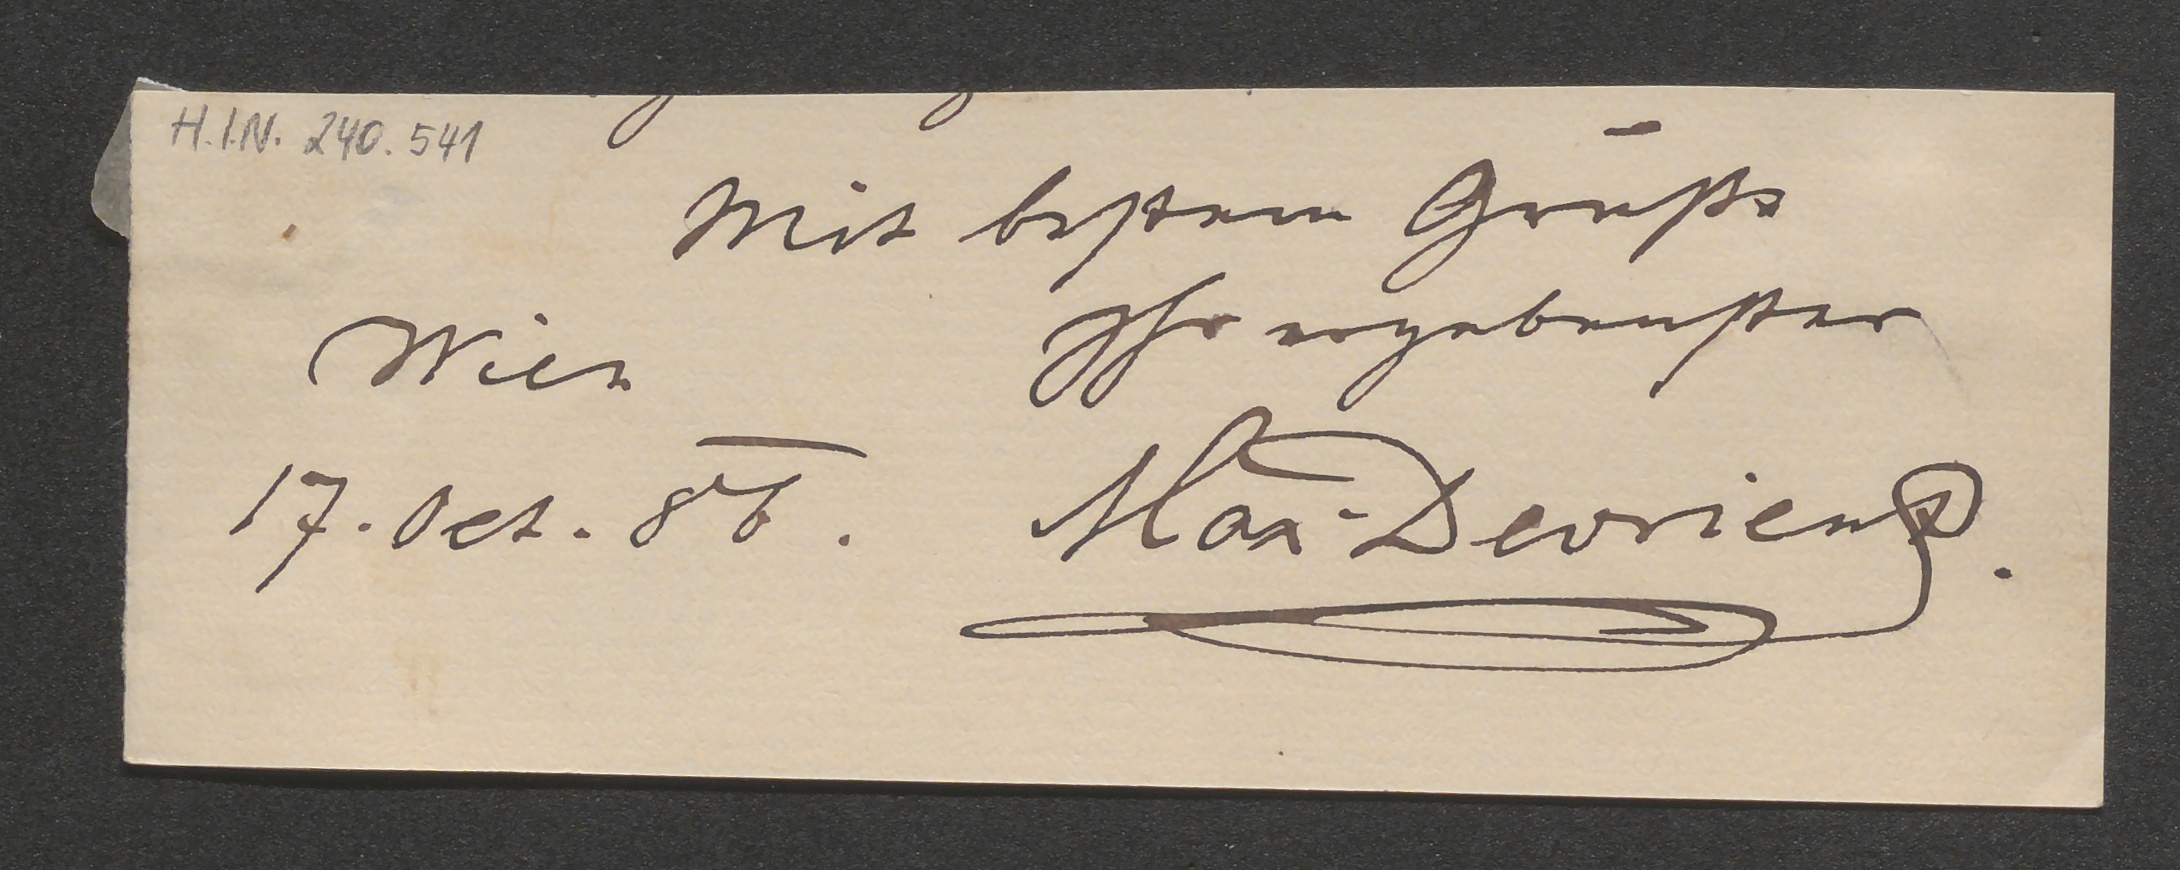 H.I.N. 240.541
Mit bestem Gruße
Ihr ergebenster
Wien
17. Oct. 86.
Max Devrient.